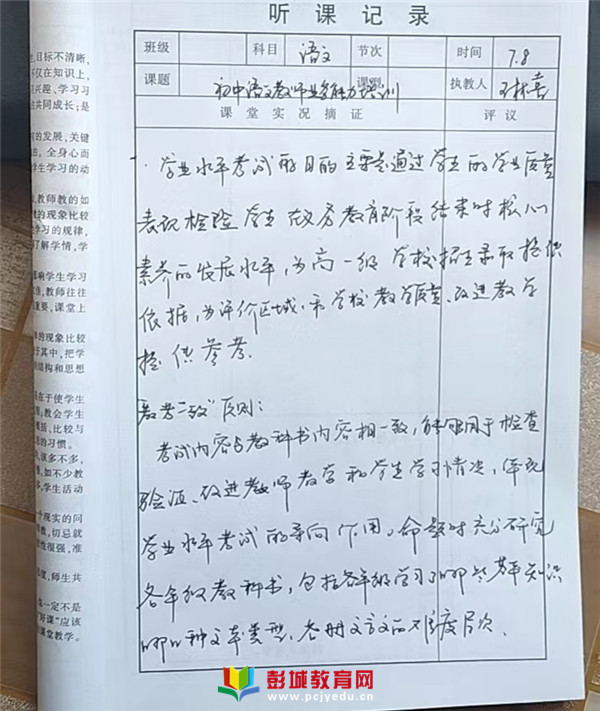 听课记录
班级 科目 语文 节次 时间 7.8
课题 初中语文教师业务能力培训 课型 执教人
课堂实况摘证 评议
一. 学业水平考试的目的主要是通过学生的学业质量
表现检验学生义务教育阶段结束时核心
素养的发展水平，为高一级学校招生录取提供
依据，为评价区域和学校教学质量、改进教学
提供参考.
教考一致"原则：
考试内容与教科书内容相一致，能够用于检查
验证、改进教师教学和学生学习情况，体现
学业水平考试的导向作用。命题时充分研究
各年级教科书，包括各年级学习了哪些基本知识
哪几种文章类型、各册文言文的难度层次.
目标不清晰，
不仅在知识上，
兴趣、学习习
共同成长；是
的发展，关键
全身心而
学生学习的动
教师教的如
的现象比较
学习的规律，
了解学情，学
影响学生学习
教师往往
重要，课堂上
的现象比较
于其中，把学
结构和思想
在于使学生
教会学生
比较与
的习惯。
该多不多，
如不少教
学生活动
个现实的问
切忌就
性很强，准
师生共
一定不是
好课"应该
课堂教学。
彭城教育网
www.pcjyedu.cn